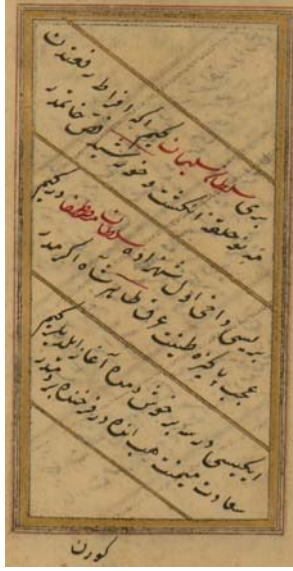 بری سلطان سلیمان کیم اکر افراط رفعتدن
مه نو حلقه انکشت و خورشید فص خاتمدر
بریسی داخی اول شهزاده سلطان مصطفا در کیم
عجب پاکیزه طینت عرق طاهر شاه اکرمدر
ایکیسی درسه بر خوش دمده آغاز ایلدیلر کیم
سعادت میمنت هب انده در فرخنده بر دمدر
کورن